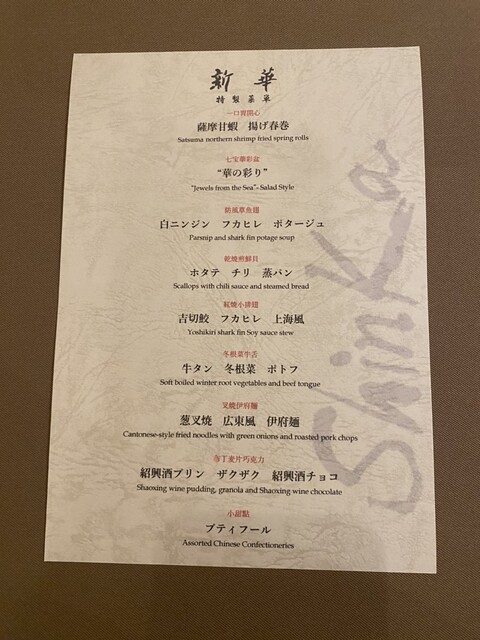 新華
特製菜単
一口嘗開心
薩摩甘蝦 揚げ春巻
Satsuma northern shrimp fried spring rolls
七宝華彩盆
“華の彩り”
"Jewels from the Sea"- Salad Style
防風草魚翅
白ニンジン フカヒレ ポタージュ
Parsnip and shark fin potage soup
乾焼煎鮮貝
ホタテ チリ 蒸パン
Scallops with chili sauce and steamed bread
紅燜小排翅
吉切鮫 フカヒレ 上海風
Yoshikiri shark fin Soy sauce stew
冬根菜牛舌
牛タン 冬根菜 ポトフ
Soft boiled winter root vegetables and beef tongue
叉焼伊府麺
葱叉焼 広東風 伊府麺
Cantonese-style fried noodles with green onions and roasted pork chops
布丁麦片巧克力
紹興酒プリン ザクザク 紹興酒チョコ
Shaoxing wine pudding, granola and Shaoxing wine chocolate
小甜點
プティフール
Assorted Chinese Confectioneries
Shinka